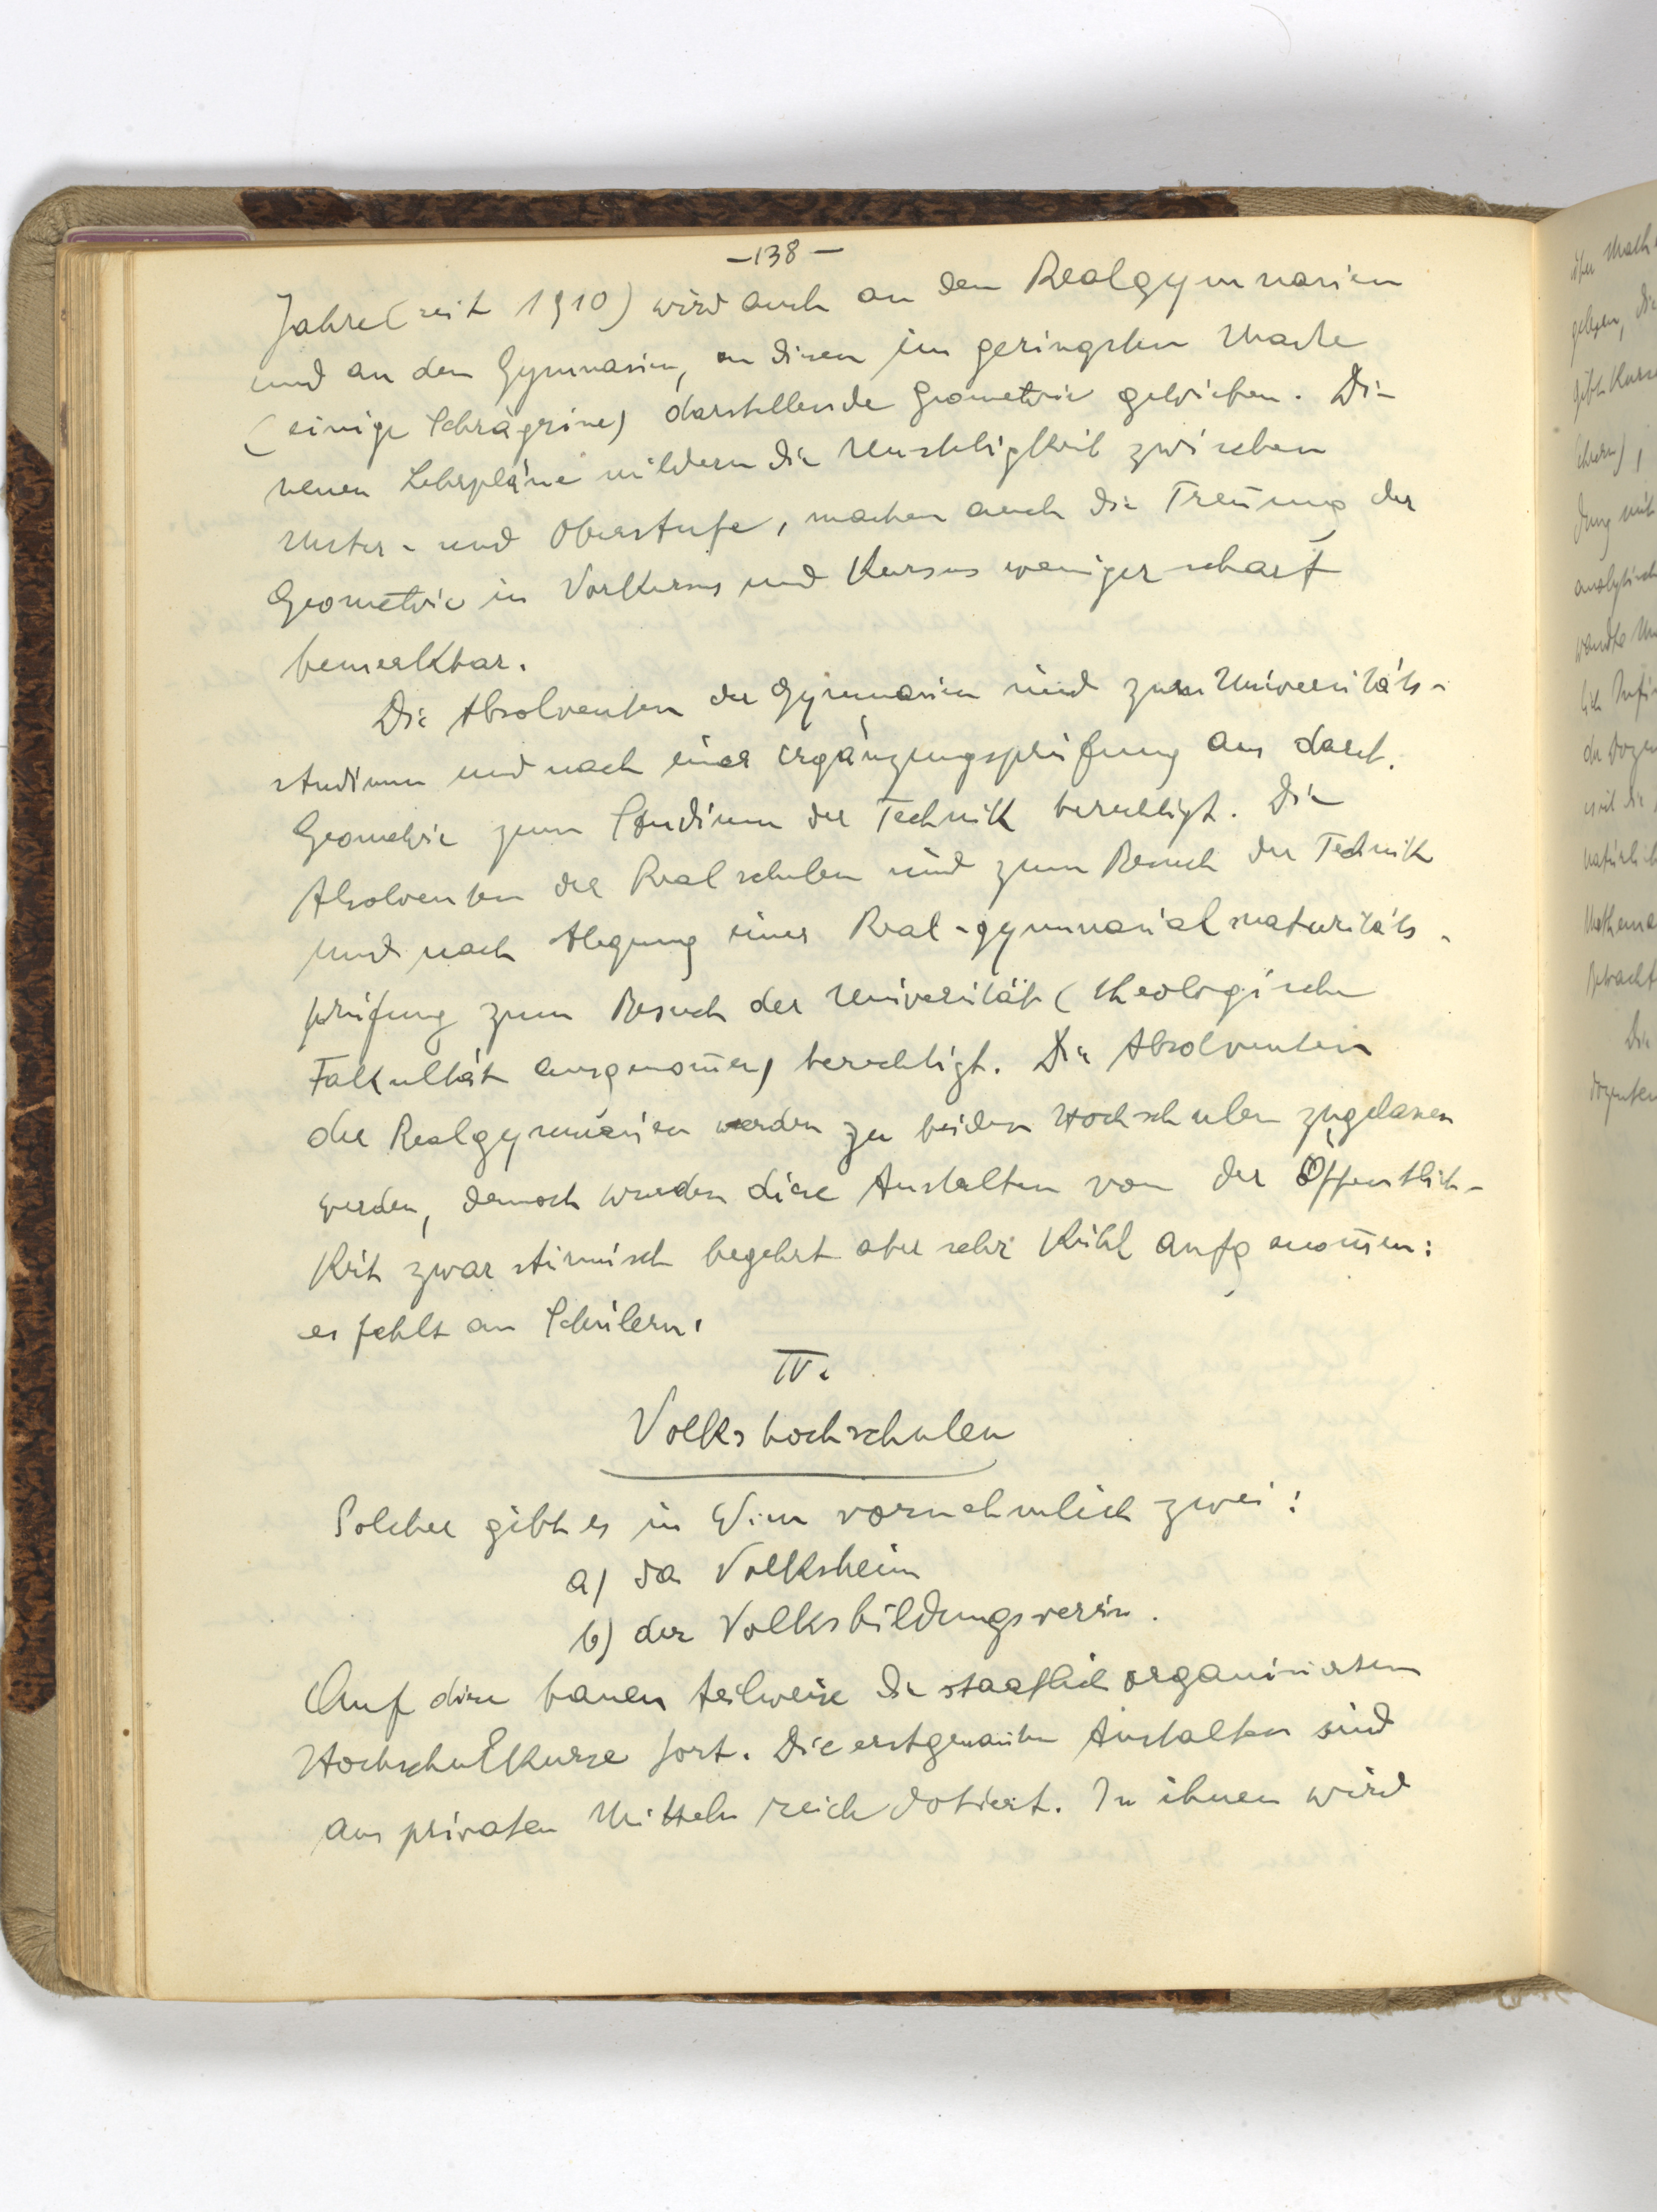 -138-
Jahre (seit 1910) wird auch an den Realgymnasien
und an den Gymnasien, an diesen im geringsten Maße
(einige Schrägrisse) darstellende Geometrie getrieben. Die
neuen Lehrpläne mildern die Unstetigkeit zwischen
Unter- und Oberstufe, machen auch die Treñung der
Geometrie in Vorkursus und Kursus weniger scharf
bemerkbar.
Die Absolventen der Gymnasien sind zum Universitäts-
studium und nach einer Ergänzungsprüfung aus darst.
Geometrie zum Studium der Technik berechtigt. Die
Absolventen der Realschulen sind zum Besuch der Technik
und nach Ablegung einer Real-gymnasialmaturitäts-
prüfung zum Besuch der Universität (theologische
Fakultät ausgenom̄en) berechtigt. Die Absolventen
der Realgymnasien werden zu beiden Hochschulen zugelassen
werden, dennoch wurden diese Anstalten von der Öffentlich-
keit zwar stürmisch begehrt aber sehr kühl aufgenom̄en:
es fehlt an Schülern.
IV.
Volkshochschulen
Solcher gibt es in Wien vornehmlich zwei:
a) das Volksheim
b) der Volksbildungsverein.
Auf diese bauen teilweise die staatlich organisierten
Hochschulkurse fort. Die erstgenañten Anstalten sind
aus privaten Mitteln reich dotiert. In ihnen wird
über Math
gelesen, die
gibt Kurse
dung mit
analytisch
natürlich
Mathema
gebracht
Die
Dozenten